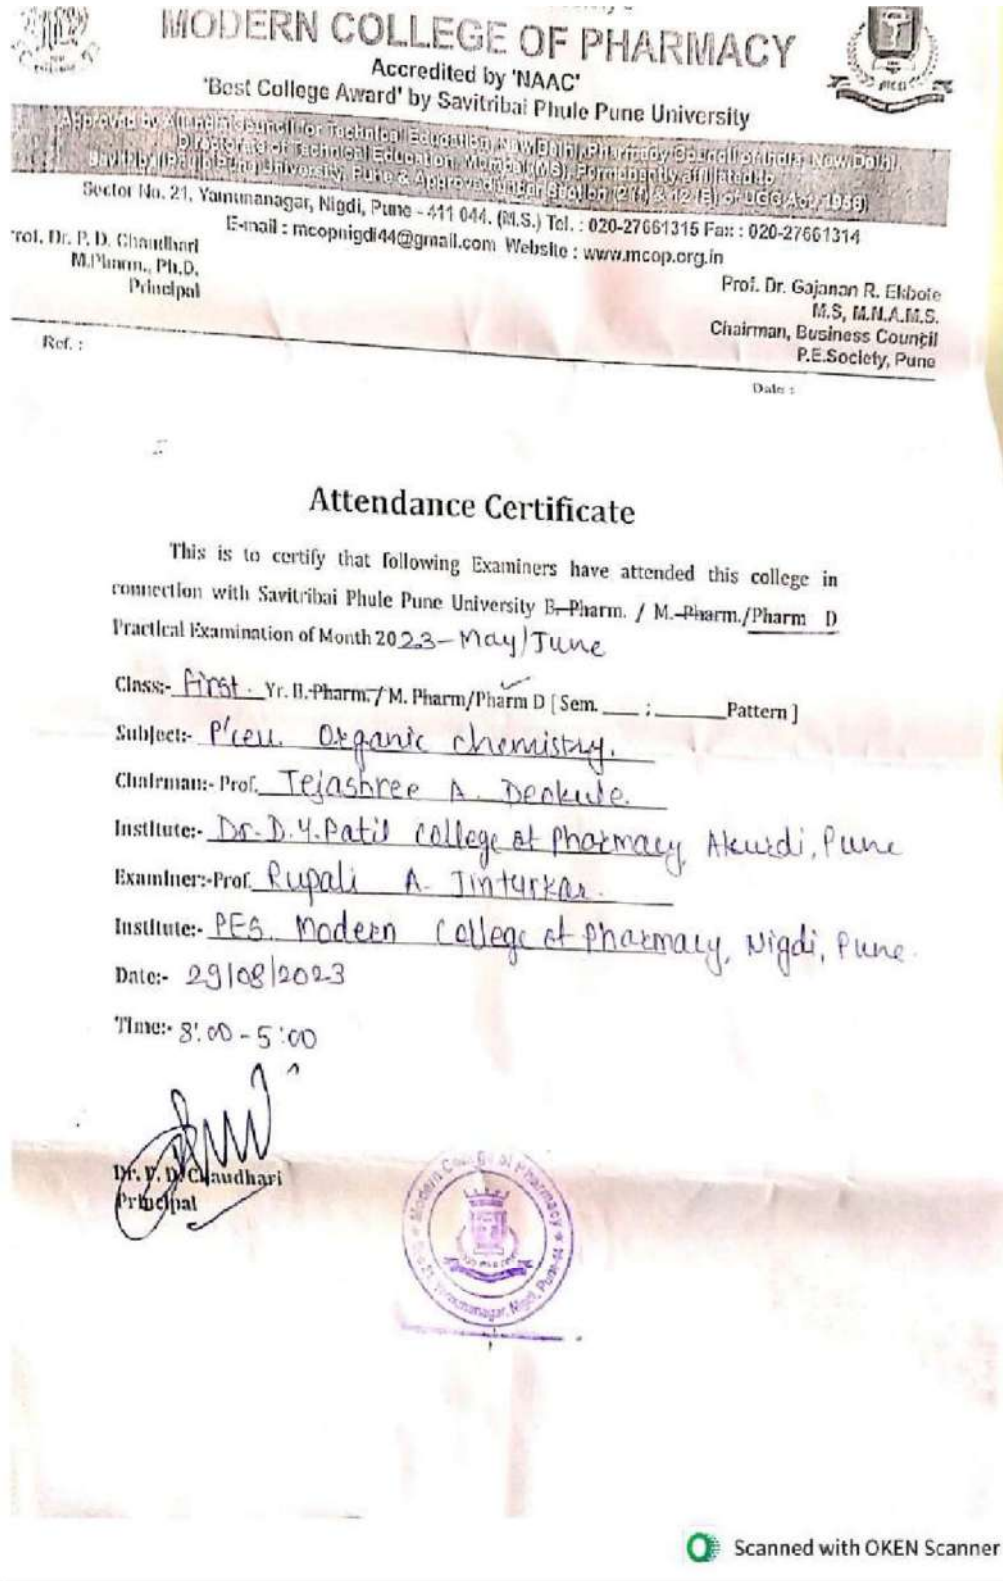 MODERN COLLEGE OF PHARMACY
Accredited by 'NAAC'
'Best College Award' by Savitribai Phule Pune University
Approved by All India Council for Technical Education, New Delhi, Pharmacy Council of India, New Delhi,
Directorate of Technical Education, Mumbai (MS), Permanently affiliated to
Savitribai Phule Pune University, Pune & Approved under Section (2 (f) & 12 (B) of UGC Act, 1956)
Sector No. 21, Yamunanagar, Nigdi, Pune - 411 044. (M.S.) Tel. : 020-27661315 Fax : 020-27661314
E-mail : mcopnigdi44@gmail.com Website : www.mcop.org.in
rof. Dr. P. D. Chaudhari
M.Pharm., Ph.D.
Principal
Prof. Dr. Gajanan R. Ekbote
M.S, M.N.A.M.S.
Chairman, Business Council
P.E.Society, Pune
Ref. :
Date :
Attendance Certificate
This is to certify that following Examiners have attended this college in
connection with Savitribai Phule Pune University B-Pharm. / M.-Pharm./Pharm D
Practical Examination of Month 2023-May/June
Class:- First. Yr. B.-Pharm. / M. Pharm/Pharm D [ Sem. ____ ; ______Pattern ]
Subject:- P'ceu. Organic chemistry.
Chairman:- Prof. Tejashree A. Deokule.
Institute:- Dr. D.Y. Patil college of pharmacy, Akurdi, Pune
Examiner:-Prof. Rupali A. Jinturkar.
Institute:- PES. Modern College of pharmacy, Nigdi, Pune.
Date:- 29/08/2023
Time:- 8:00 - 5:00
Dr. P. D. Chaudhari
Principal
Modern College of Pharmacy
Yamunanagar, Nigdi, Pune-44
Scanned with OKEN Scanner